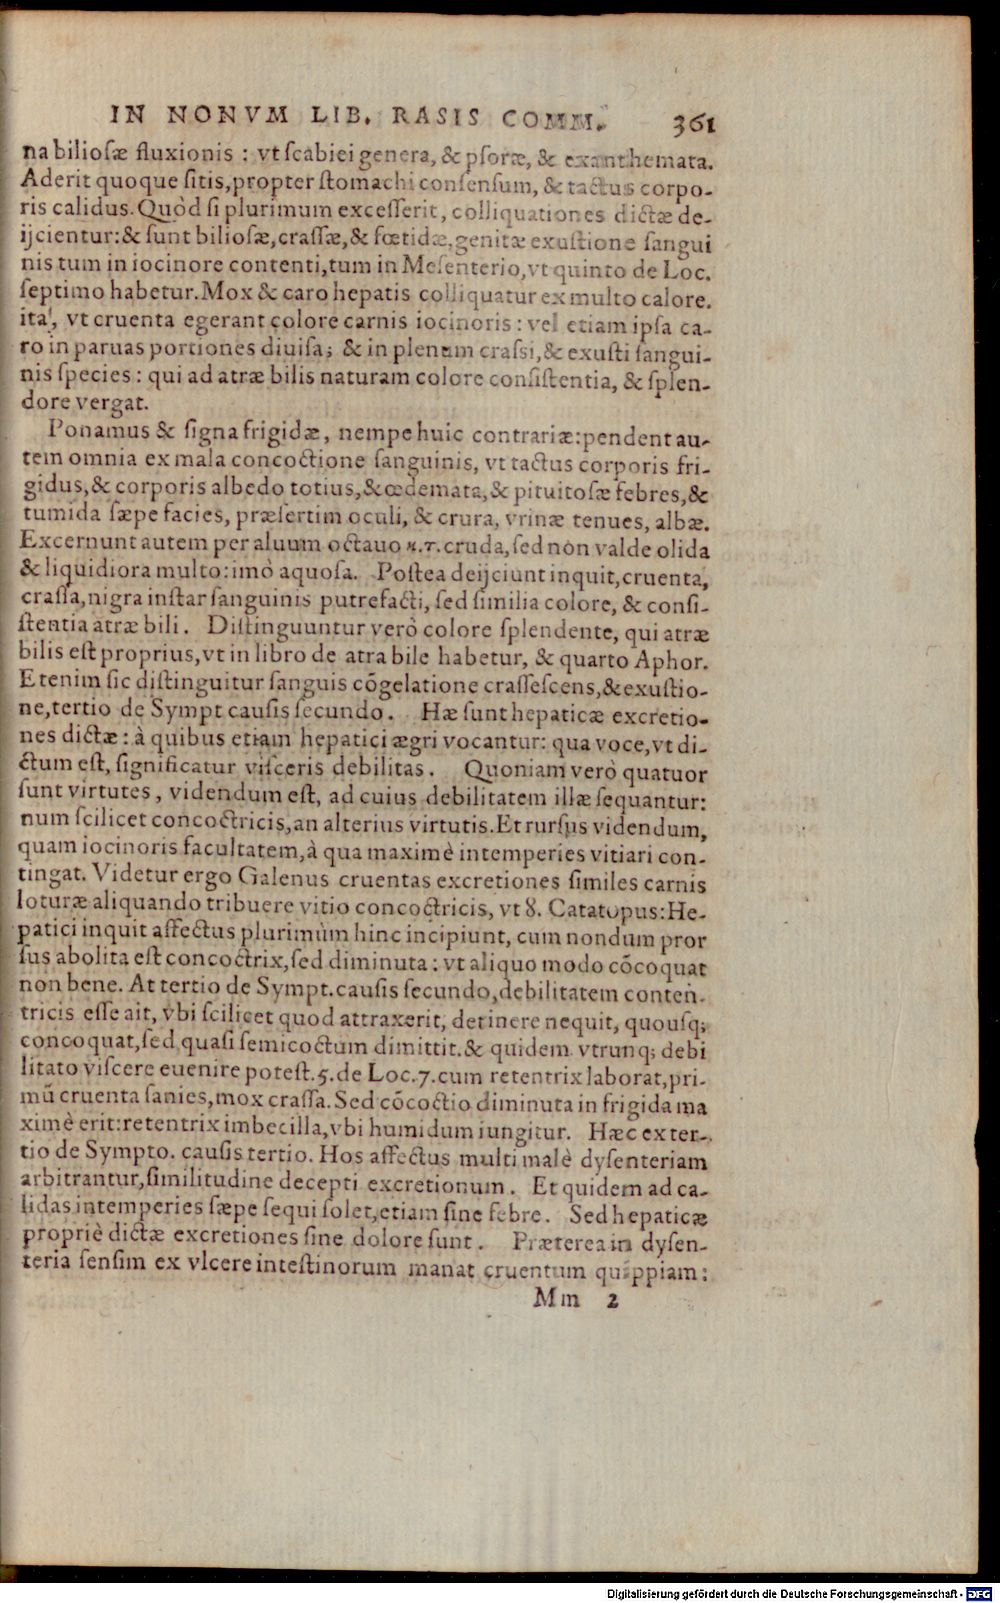 IN NONVM LIB. RASIS COMM. 361
na biliosæ fluxionis : vt scabiei genera, & psoræ, & exanthemata.
Aderit quoque sitis, propter stomachi consensum, & tactus corpo-
ris calidus. Quòd si plurimum excesserit, colliquationes dictæ de-
ijcientur: & sunt biliosæ, crassæ, & fœtidæ, genitæ exustione sangui
nis tum in iocinore contenti, tum in Mesenterio, vt quinto de Loc.
septimo habetur. Mox & caro hepatis colliquatur ex multo calore.
ita, vt cruenta egerant colore carnis iocinoris : vel etiam ipsa ca-
ro in paruas portiones diuisa; & in plenum crassi, & exusti sangui-
nis species : qui ad atræ bilis naturam colore consistentia, & splen-
dore vergat.
Ponamus & signa frigidæ, nempe huic contrariæ: pendent au-
tem omnia ex mala concoctione sanguinis, vt tactus corporis fri-
gidus, & corporis albedo totius, & œdemata, & pituitosæ febres, &
tumida sæpe facies, præsertim oculi, & crura, vrinæ tenues, albæ.
Excernunt autem per aluum octauo κ.τ. cruda, sed non valde olida
& liquidiora multo: imò aquosa. Postea deijciunt inquit, cruenta,
crassa, nigra instar sanguinis putrefacti, sed similia colore, & consi-
stentia atræ bili. Distinguuntur verò colore splendente, qui atræ
bilis est proprius, vt in libro de atra bile habetur, & quarto Aphor.
Etenim sic distinguitur sanguis cõgelatione crassescens, & exustio-
ne, tertio de Sympt causis secundo. Hæ sunt hepaticæ excretio-
nes dictæ : à quibus etiam hepatici ægri vocantur: qua voce, vt di-
ctum est, significatur visceris debilitas. Quoniam verò quatuor
sunt virtutes, videndum est, ad cuius debilitatem illæ sequantur:
num scilicet concoctricis, an alterius virtutis. Et rursus videndum,
quam iocinoris facultatem, à qua maximè intemperies vitiari con-
tingat. Videtur ergo Galenus cruentas excretiones similes carnis
loturæ aliquando tribuere vitio concoctricis, vt 8. Catatopus: He-
patici inquit affectus plurimùm hinc incipiunt, cum nondum pror
sus abolita est concoctrix, sed diminuta : vt aliquo modo cõcoquat
non bene. At tertio de Sympt. causis secundo, debilitatem conten-
tricis esse ait, vbi scilicet quod attraxerit, detinere nequit, quousq;
concoquat, sed quasi semicoctum dimittit. & quidem vtrunq; debi
litato viscere euenire potest. 5. de Loc. 7. cum retentrix laborat, pri-
mũ cruenta sanies, mox crassa. Sed cõcoctio diminuta in frigida ma
ximè erit: retentrix imbecilla, vbi humidum iungitur. Hæc ex ter-
tio de Sympto. causis tertio. Hos affectus multi malè dysenteriam
arbitrantur, similitudine decepti excretionum. Et quidem ad ca-
lidas intemperies sæpe sequi solet, etiam sine febre. Sed hepaticæ
propriè dictæ excretiones sine dolore sunt. Præterea in dysen-
teria sensim ex vlcere intestinorum manat cruentum quippiam:
Mm 2
Digitalisierung gefördert durch die Deutsche Forschungsgemeinschaft - DFG